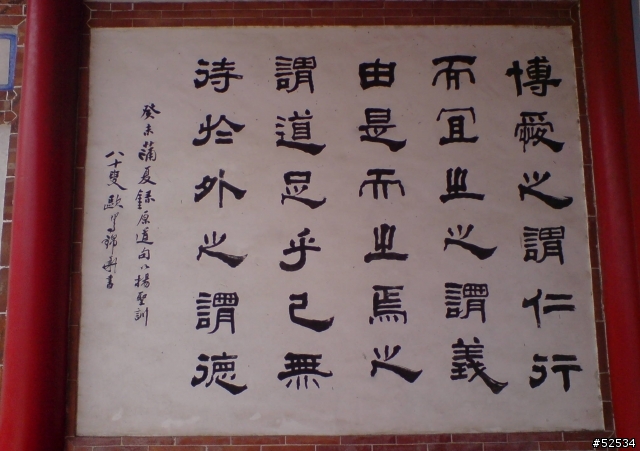 博愛之謂仁行
而宜之之謂義
由是而之焉之
謂道足乎己無
待於外之謂德
癸未蒲夏錄原道句以揚聖訓
八十叟歐錦書